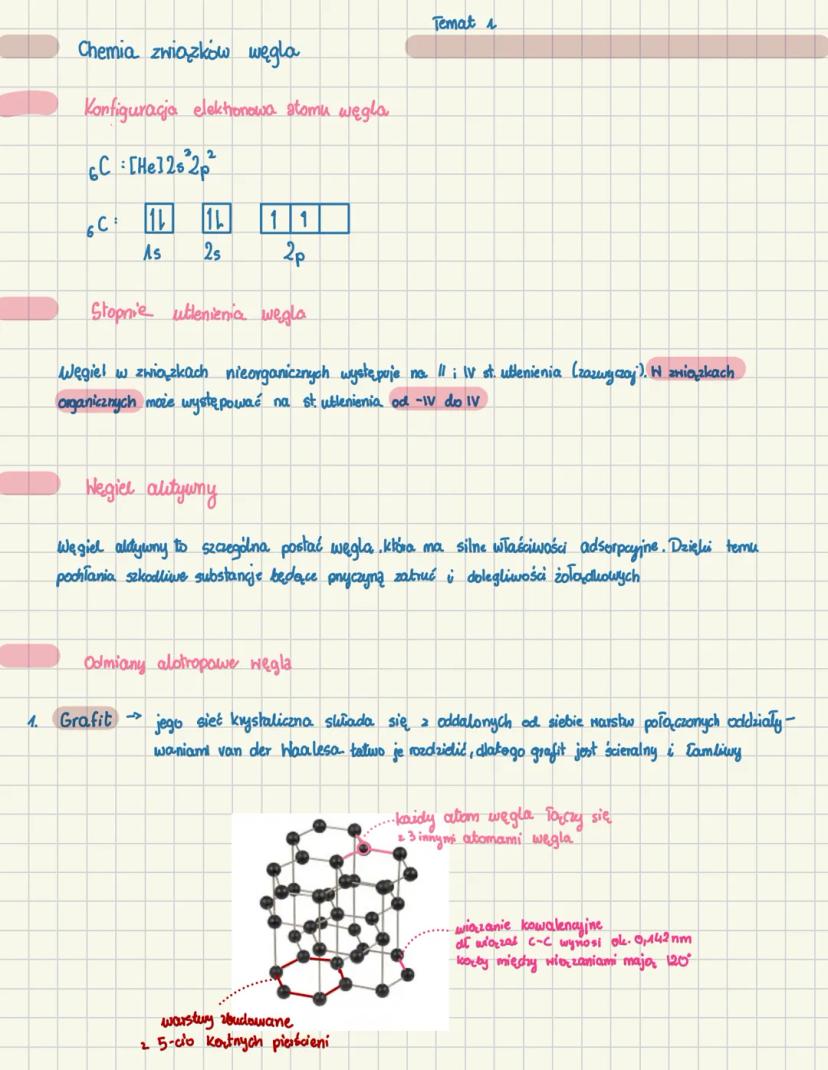 Temat 1
Chemia związków węgla
Konfiguracja elektronowa atomu węgla
₆C : [He] 2s³2p²
₆C :
1s 2s 2p
Stopnie utlenienia węgla
Węgiel w związkach nieorganicznych występuje na II i IV st. utlenienia (zazwyczaj). W związkach
organicznych może występować na st. utlenienia od -IV do IV
Węgiel aktywny
Węgiel aktywny to szczególna postać węgla, która ma silne właściwości adsorpcyjne. Dzięki temu
pochłania szkodliwe substancje będące przyczyną zatruć i dolegliwości żołądkowych
Odmiany alotropowe węgla
1. Grafit → jego sieć krystaliczna składa się z oddalonych od siebie warstw połączonych oddziały-
waniami van der Waalesa łatwo je rozdzielić, dlatego grafit jest ścieralny i łamliwy
każdy atom węgla łączy się
z 3 innymi atomami węgla
wiązanie kowalencyjne
dł wiązań C-C wynosi ok. 0,142 nm
kąty między wiązaniami mają 120°
warstwy zbudowane
z 5-cio kątnych pierścieni